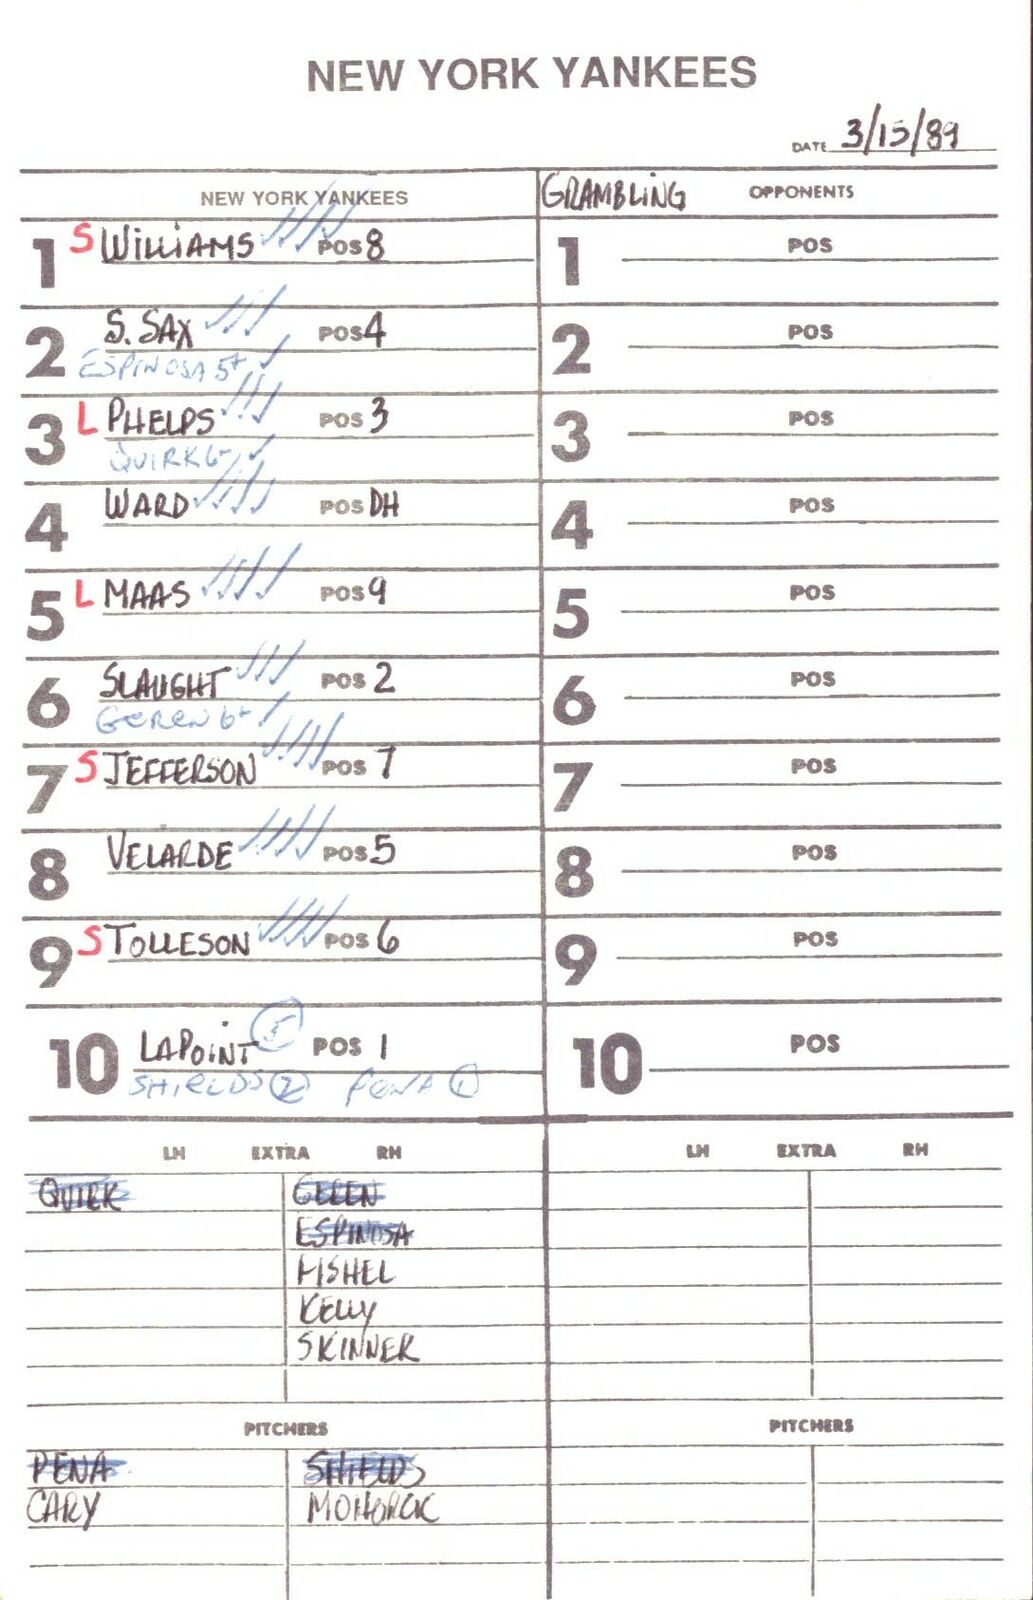 NEW YORK YANKEES
DATE 3/15/89
NEW YORK YANKEES
GRAMBLING OPPONENTS
1 S WILLIAMS POS 8
2 S. SAX POS 4
ESPINOSA 5+
3 L PHELPS POS 3
QUIRK 6-
4 WARD POS DH
5 L MAAS POS 9
6 SLAUGHT POS 2
GEREN 6+
7 S JEFFERSON POS 7
8 VELARDE POS 5
9 S TOLLESON POS 6
10 LAPOINT 5 POS 1
SHIELDS 2 PENA 1
1 POS
2 POS
3 POS
4 POS
5 POS
6 POS
7 POS
8 POS
9 POS
10 POS
LH EXTRA RH
QUIRK GEREN
ESPINOSA
FISHEL
KELLY
SKINNER
PITCHERS
PENA SHIELDS
CARY MOHORCIC
LH EXTRA RH
PITCHERS